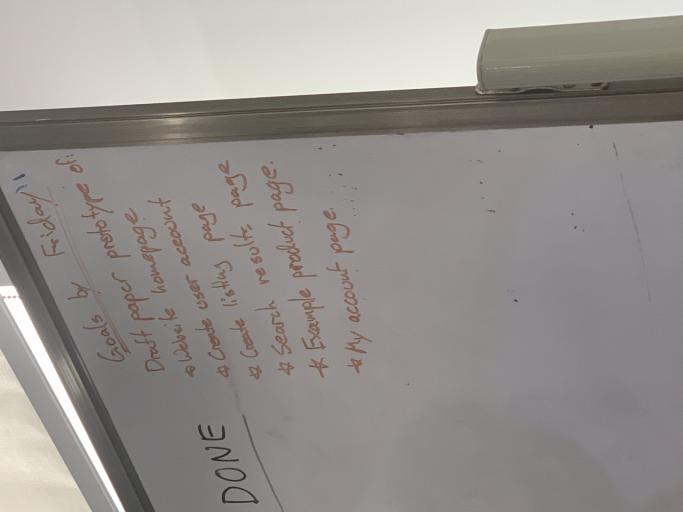 Goals by Friday:
Draft paper prototype of:
* Website homepage
* Create user account page
* Create listing page
* Search results page
* Example product page.
* My account page.
DONE